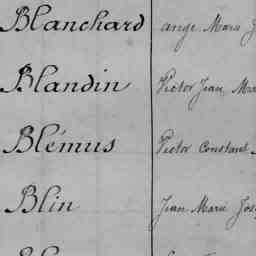 Blanchard ange Marie J
Blandin Victor Jean Ma
Blémus Victor Constant
Blin Jean Marie Jos